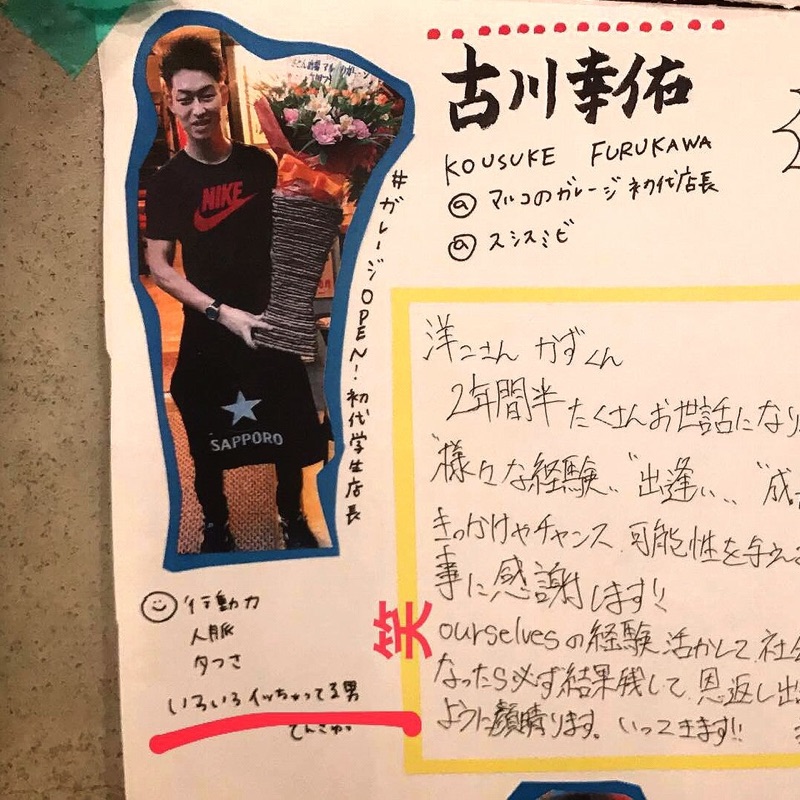 古川幸佑
KOUSUKE FURUKAWA
@ マルコのガレージ 初代店長
@ スシスミビ
#ガレージOPEN!初代学生店長
NIKE
SAPPORO
行動力
人脈
タつさ
いろいろイッちゃってる男
笑
洋二さん かずくん
2年間半たくさんお世話になり
"様々な経験" "出逢い" "成
きっかけやチャンス、可能性を与え
事に感謝します!!
ourselvesの経験活かして社会
なったら必ず結果残して、恩返し出
ように顔晴ります。いってきます!!